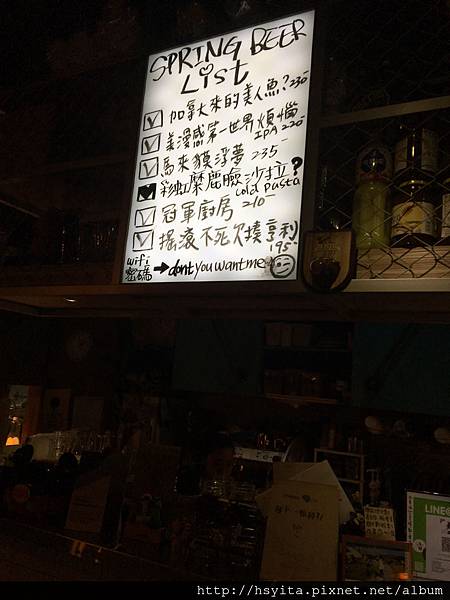 SPRING BEER
List
加拿大來的美人魚? 230-
美漫感第一世界煩惱
IPA 220-
馬來貘浮夢 235-
彩虹麋鹿臉沙拉?
Cold pasta
冠軍廚房 210-
搖滾不死欠揍亨利
195-
wifi
密碼 → dont you want me
LINE@
http://hsyita.pixnet.net/album